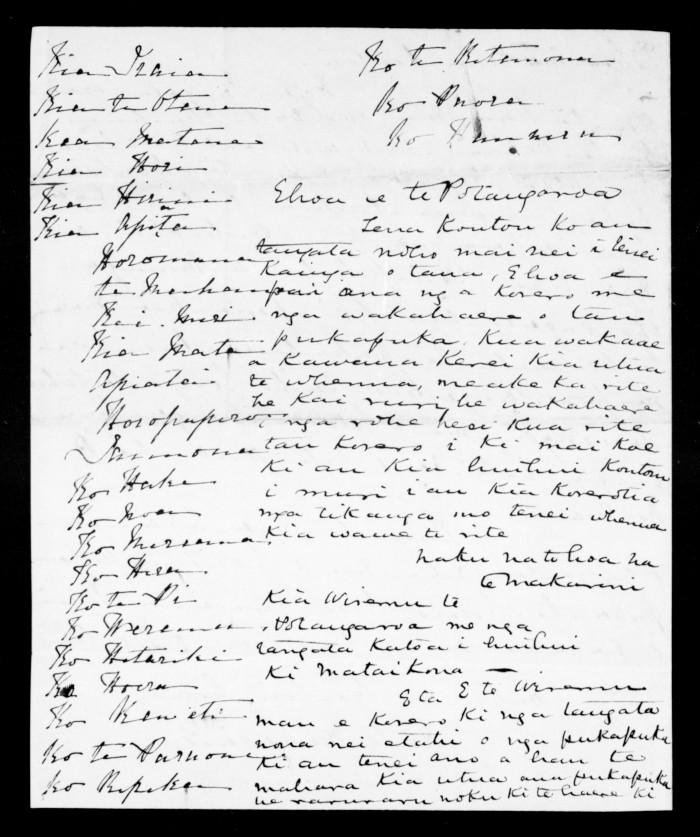 Kia Isaia
Kia te Otene
Kia Matene
Kia Hori
Kia
Kia Apita
Horomona
te
Kia
Kia Mata
Apiata
Ko
Ko
Ko
Ko
Ko te
Ko
Ko Hetariki
Ko Hoera
Ko
Ko te
Ko Ripeka
Ko te Ritemona
Ko Paora
Ko
Ehoa e te Potangaroa
Tena Koutou Ko au
tangata noho mai nei i tenei
Kainga o tana, Ehoa e
pai ana nga Korero me
nga wakahaere o tau
pukapuka, Kua wakaae
a Kawana Kerei Kia utua
te whenua, meake ka rite
he Kai ruri he wakahaere
nga rohe heoi Kua rite
tau Korero i Ki mai koe
Ki au Kia huihui Koutou
i muri i au Kia Korerotia
nga tikanga mo tenei whenua
Kia wawe te rite
naku na to hoa na
te makarini
Kia Wiremu te
Potangaroa me nga
tangata Katoa i huihui
Ki Mataikona
Eta E te Wiremu
mau e Korero Ki nga tangata
nona nei etahi o nga pukapuka
Ki au tenei ano a hau te
mahara Kia utua ana pukapuka
he raruraru noku Ki te haere Ki